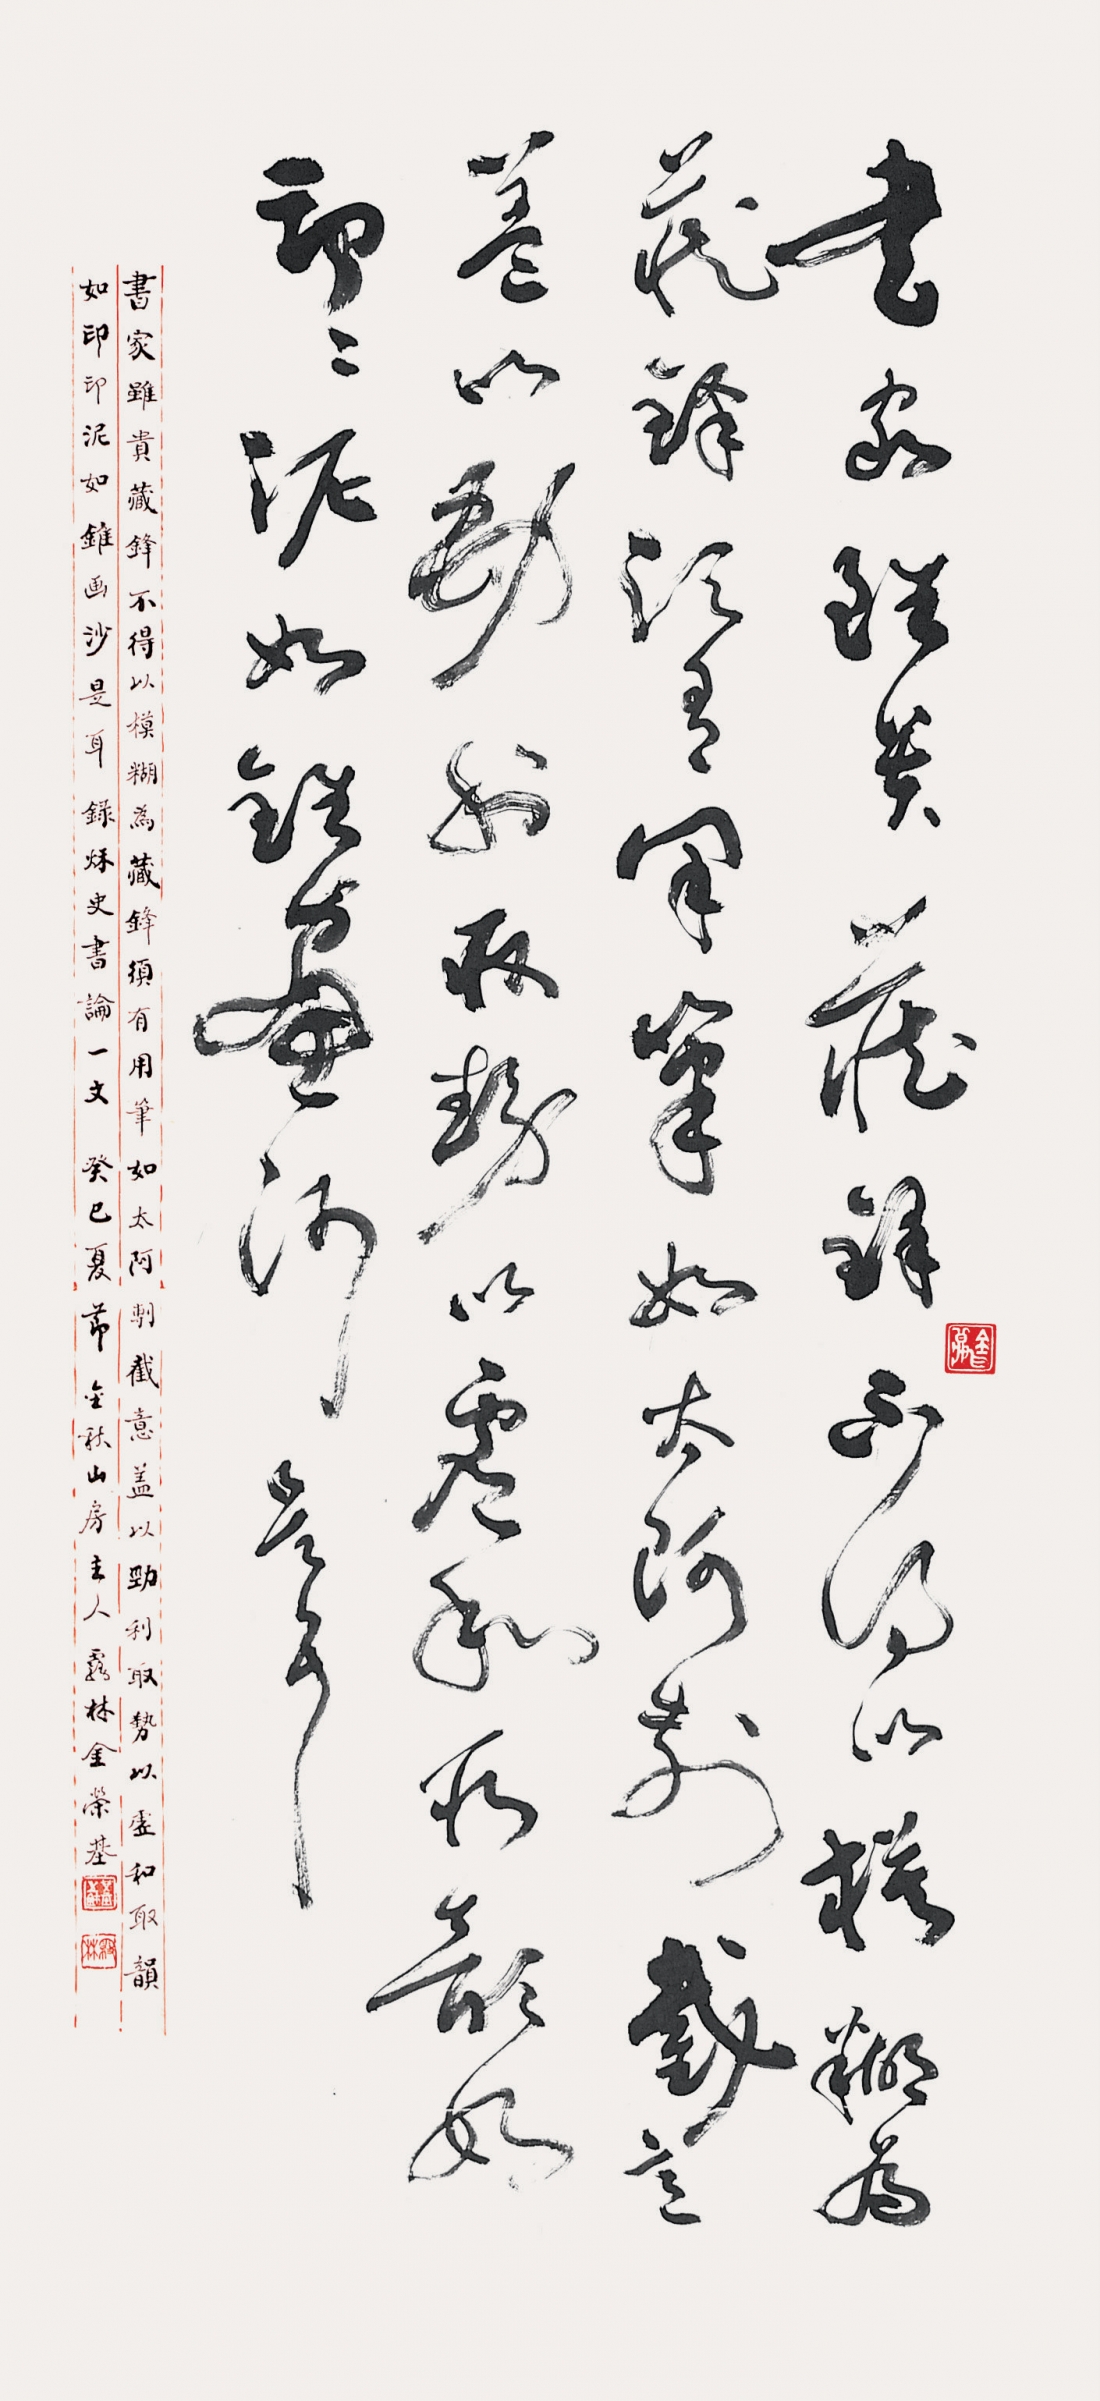 書家雖貴藏鋒不得以模糊為
藏鋒須有用筆如太阿剸截意
蓋以勁利取勢以虛和取韻如
印〻泥如錐畫沙是耳
書家雖貴藏鋒不得以模糊為藏鋒須有用筆如太阿剸截意盖以勁利取勢以虛和取韻
如印印泥如錐画沙是耳 錄炑史書論一文 癸巳夏節 金秋山房主人 霧林金榮基